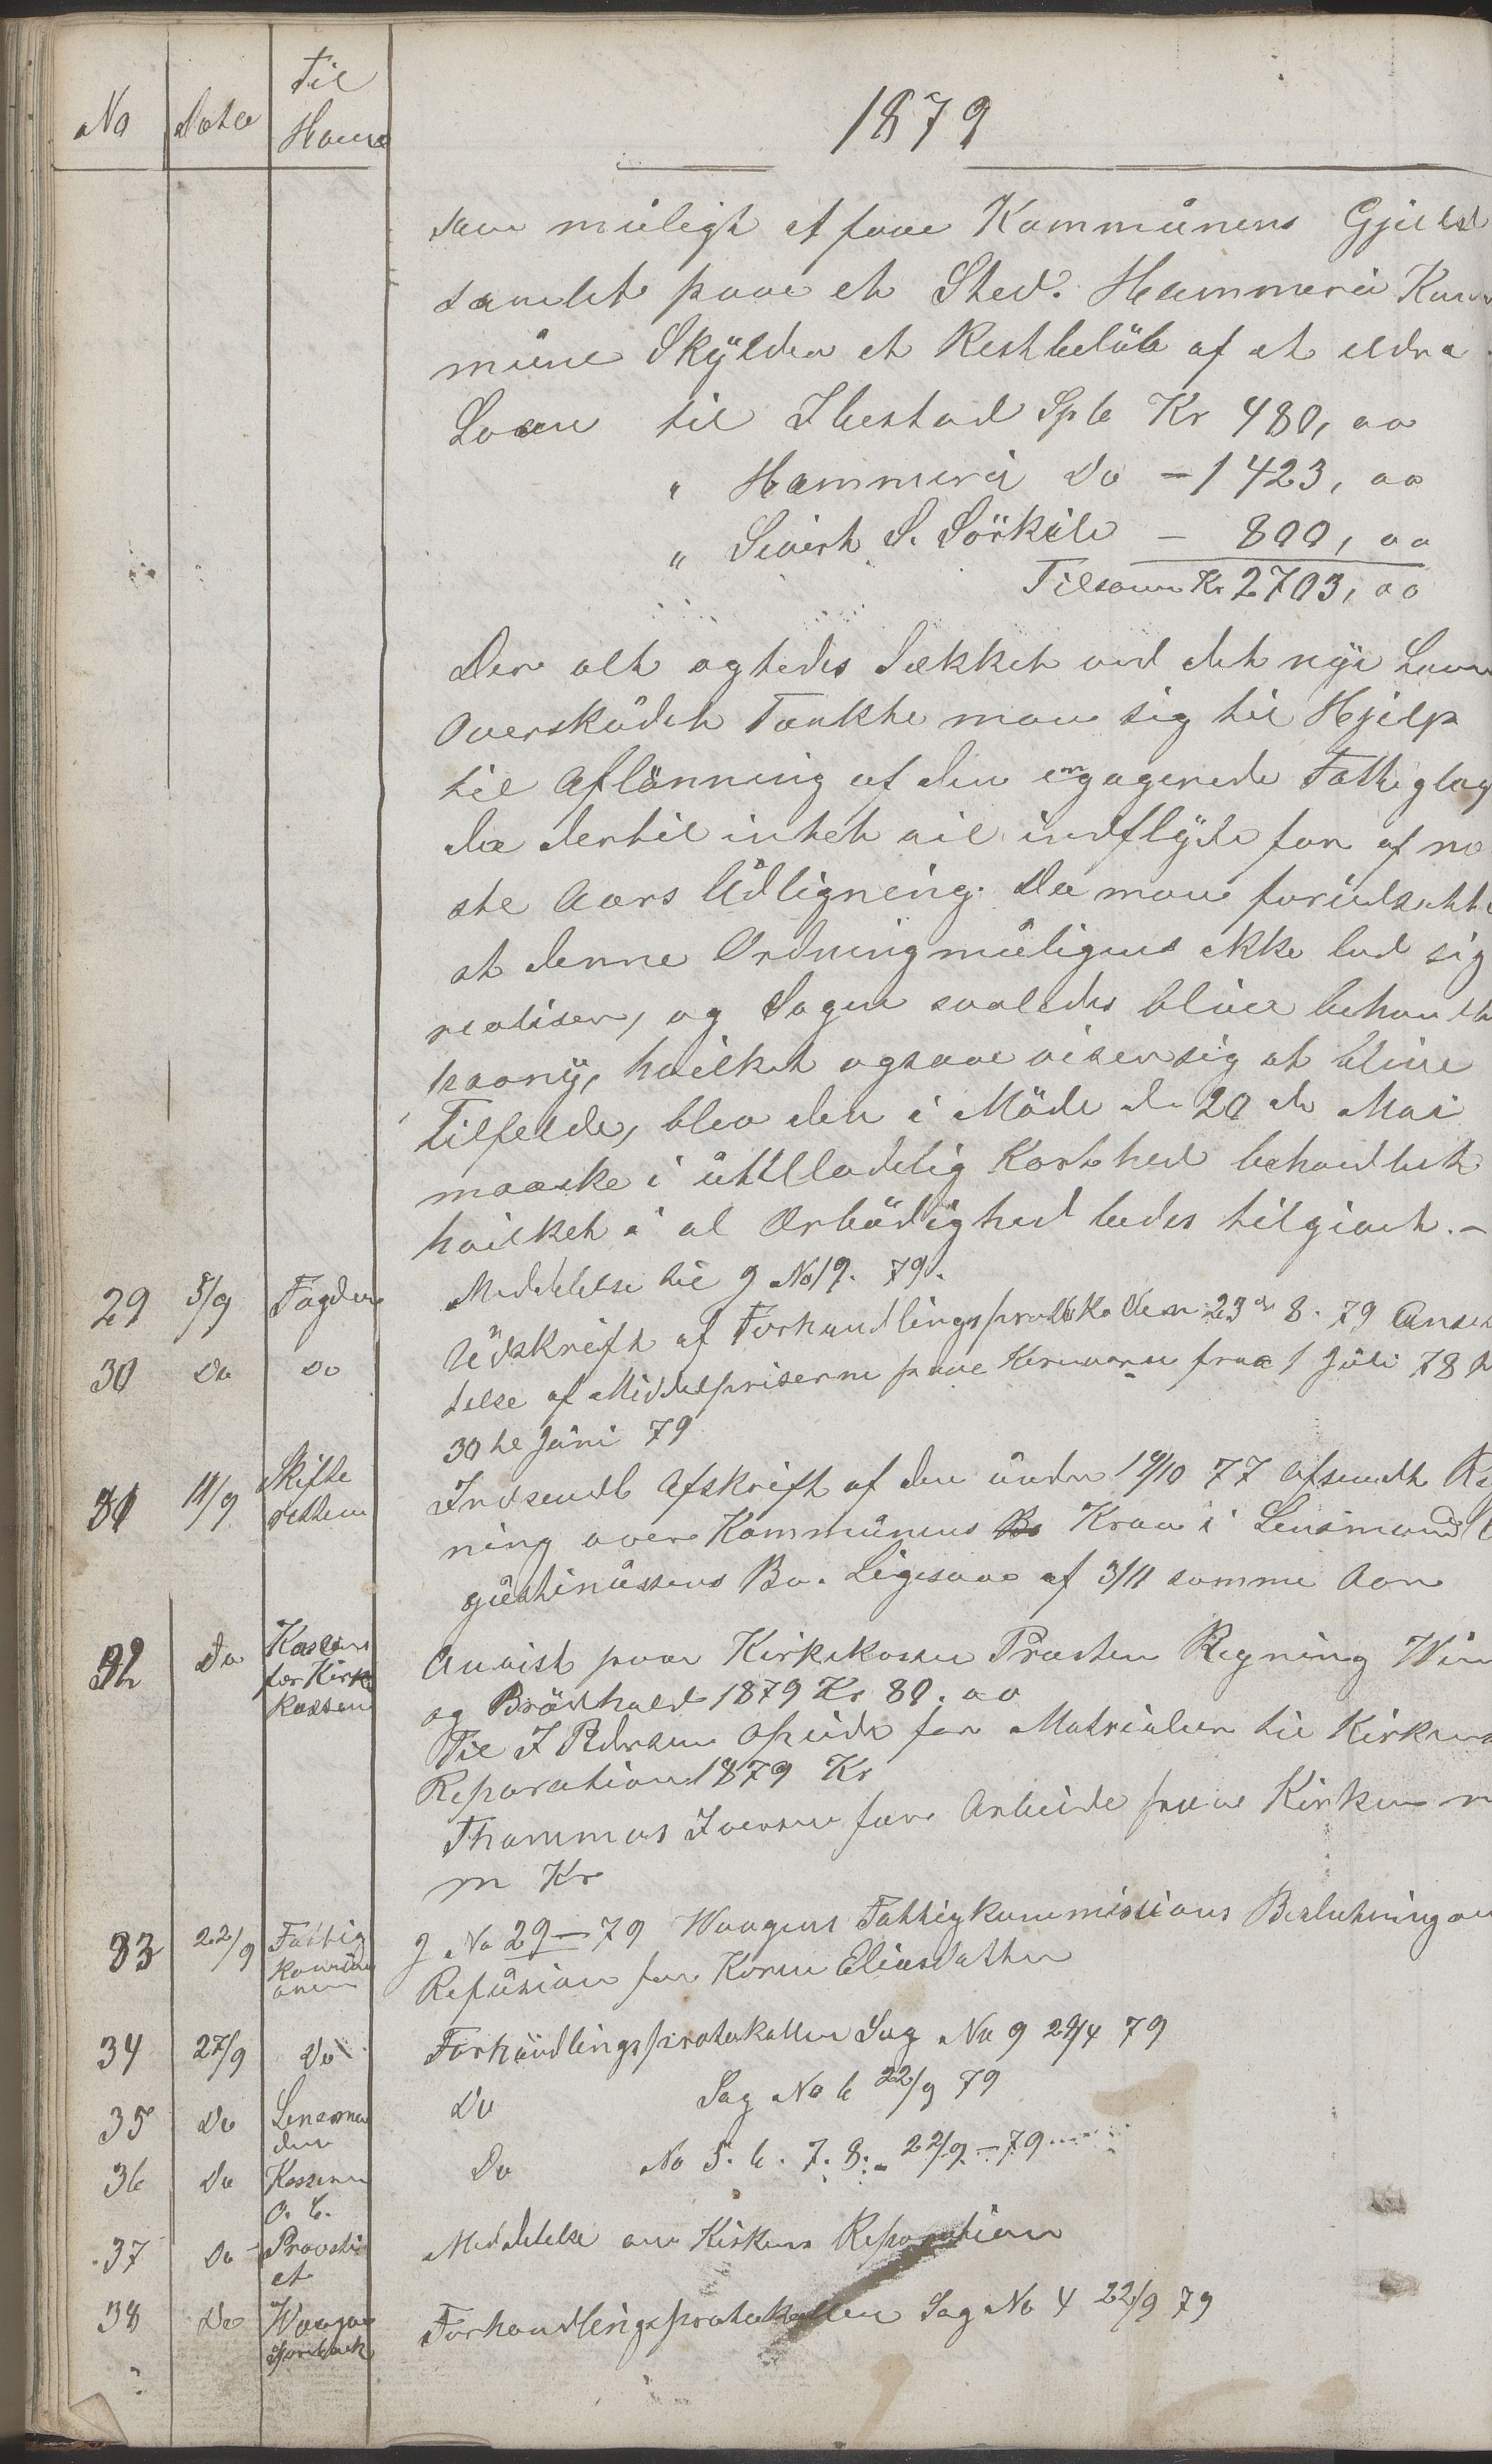 No Date Til Hvem
1879
som muligt at faae Kommunens Gjæld
samlet paae et Sted. Hammerø Kom
mune Skylder et Restbeløb af et eldre
Loan til Ibestad Spb Kr 480, oo
" Hammerø Do - 1423, oo
" Sivert S. Sørkile - 800, oo
Tilsam Kr 2703, oo
Der alt agtedes dækket ved det nye Laan
Overskudet Tænkte man sig til Hjelp
til Aflønning af den engagerede Fattiglæg
da dertil intet vil indflyde før af næ
ste Aars Udligning. Da man forudsatte
at denne Ordning muligens ikke lod sig
realiser, og Sagen saaledes blive behandlet
paany, hvilket ogsaae viser sig at blive
Tilfelde, blev den i Møde de 20 de Mai
maaske i utilladelig Korthed behandlet
hvilket i al Ærbødighed bedes tilgivet. -
29 5/9 Fogden Meddelelse til J No 19. 79.
30 Do Do Udskrift af Forhandlingsprotokollen 23de 8. 79 Ansæt
telse af Middelpriserne paae Kornvarer fraa 1 Juli 78 t
30 te Juni 79
31 11/9 Skifte retten Indsendt Afskrift af den under 19/10 77 afsendte Reg
ning over Kommunens Krav i Lensmand
gustinussens Bo. Ligesaae af 3/11 samme Aar
32 Do Kasseren for Kirke kassen Anvist paae Kirkekassen Præsten Regning Win
og Brødhold 1879 Kr 80. oo
Til J Pedersen for Matrialier til Kirkens
Reparation 1879 Kr
Thommas Iversen for Arbeide paae Kirken m
m Kr
33 22/9 Fattig kommisi onen J No 29 - 79 Waagens Fattigkommissions Beslutning om
Refusion for Karen Eliasdatter
34 27/9 Do Forhandlingsprotokollen Sag No 9 29/4 79
35 Do Lensman den Do Sag No 6 22/9 79
36 Do Kasseren O. C. Do No 5. 6. 7. 8. - 22/9 - 79
37 Do Provsti et Meddelelse om Kirkens Reparation
38 Do Waagens Forhandlingsprotokollen Sag No 4 22/9 79